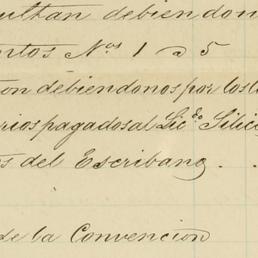 ultan debiendono
ntos Nos 1 a 5
on debiendonos por los
rios pagados al Licdo Silic
s del Escribano . .
de la Convencion